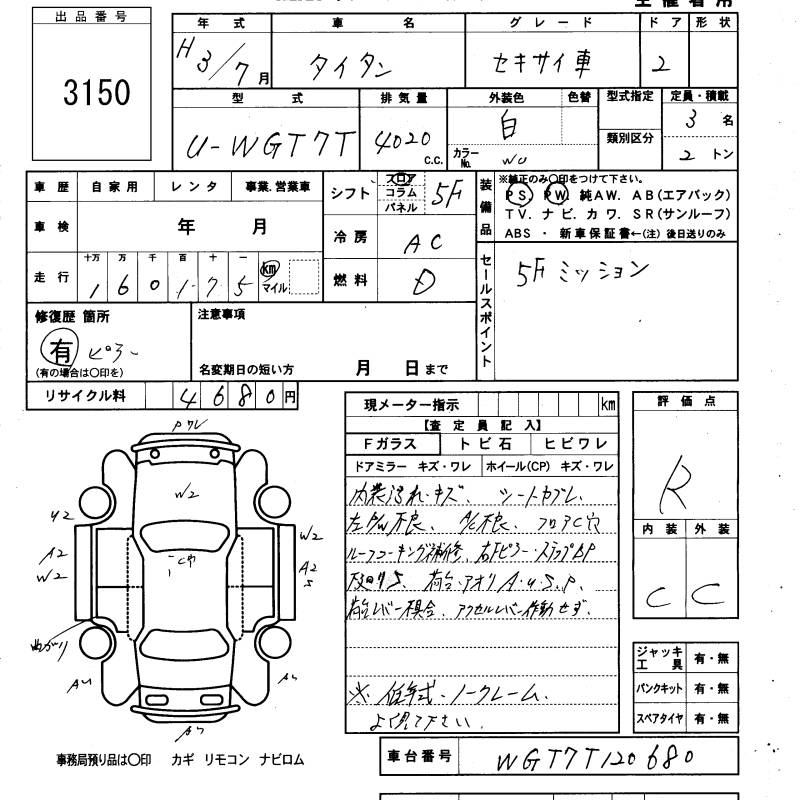 出品番号
3150
年式 車名 グレード ドア 形状
H3/7月 タイタン セキサイ車 2
型式 排気量 外装色 色替 型式指定 定員・積載
U-WGT7T 4020 C.C. 白 類別区分 3 名
カラーNo. WU 2 トン
車歴 自家用 レンタ 事業.営業車
車検 年 月
走行 十万 万 千 百 十 一
1 6 0 1 7 5 km マイル
シフト フロア コラム パネル 5F
冷房 AC
燃料 D
装備品
※純正のみ〇印をつけて下さい。
PS. PW. 純AW. AB(エアバック)
TV. ナビ. カワ. SR(サンルーフ)
ABS ・ 新車保証書←(注) 後日送りのみ
セールスポイント
5Fミッション
修復歴 箇所
有 ピラー
(有の場合は〇印を)
注意事項
名変期日の短い方 月 日まで
リサイクル料 4680円
現メーター指示 km
【査定員記入】
Fガラス トビ石 ヒビワレ
ドアミラー キズ・ワレ ホイール(CP) キズ・ワレ
内装汚れ・キズ、シートカブレ、
左PW不良、A/C不良、フロアC穴
ルーフコーキング補修、右Fピラー・ステップBP
荷台・アオリA・U・S・P、
荷台レバー具合、アクセルレバー作動せず、
※低年式・ノークレーム、
よく見て下さい。
評価点
R
内装 外装
C C
ジャッキ工具 有・無
パンクキット 有・無
スペアタイヤ 有・無
Pワレ
W2
U2
A2
W2
W2
A2
S
C穴
まがり
事務局預り品は〇印 カギ リモコン ナビロム
車台番号 WGT7T120680